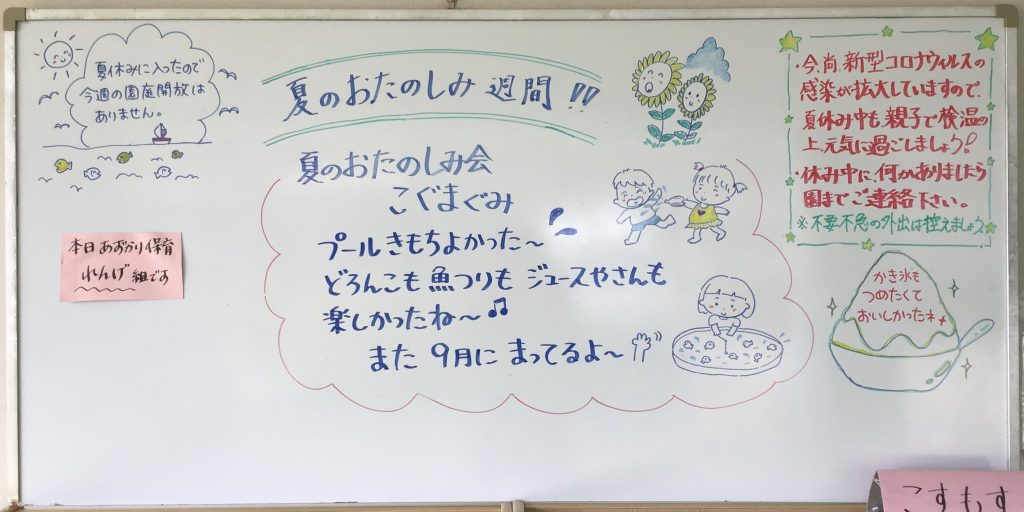 夏休みに入ったので
今週の園庭開放は
ありません。
夏のおたのしみ週間!!
夏のおたのしみ会
こぐまぐみ
プールきもちよかった～
どろんこも魚つりもジュースやさんも
楽しかったね～♫
また9月にまってるよ～
・今尚、新型コロナウィルスの
感染が拡大していますので、
夏休み中も親子で検温の
上、元気に過ごしましょう!
・休み中に、何かありましたら
園までご連絡下さい。
※不要不急の外出は控えましょう。
本日あずかり保育
れんげ組です
かき氷も
つめたくて
おいしかったネ
こすもす